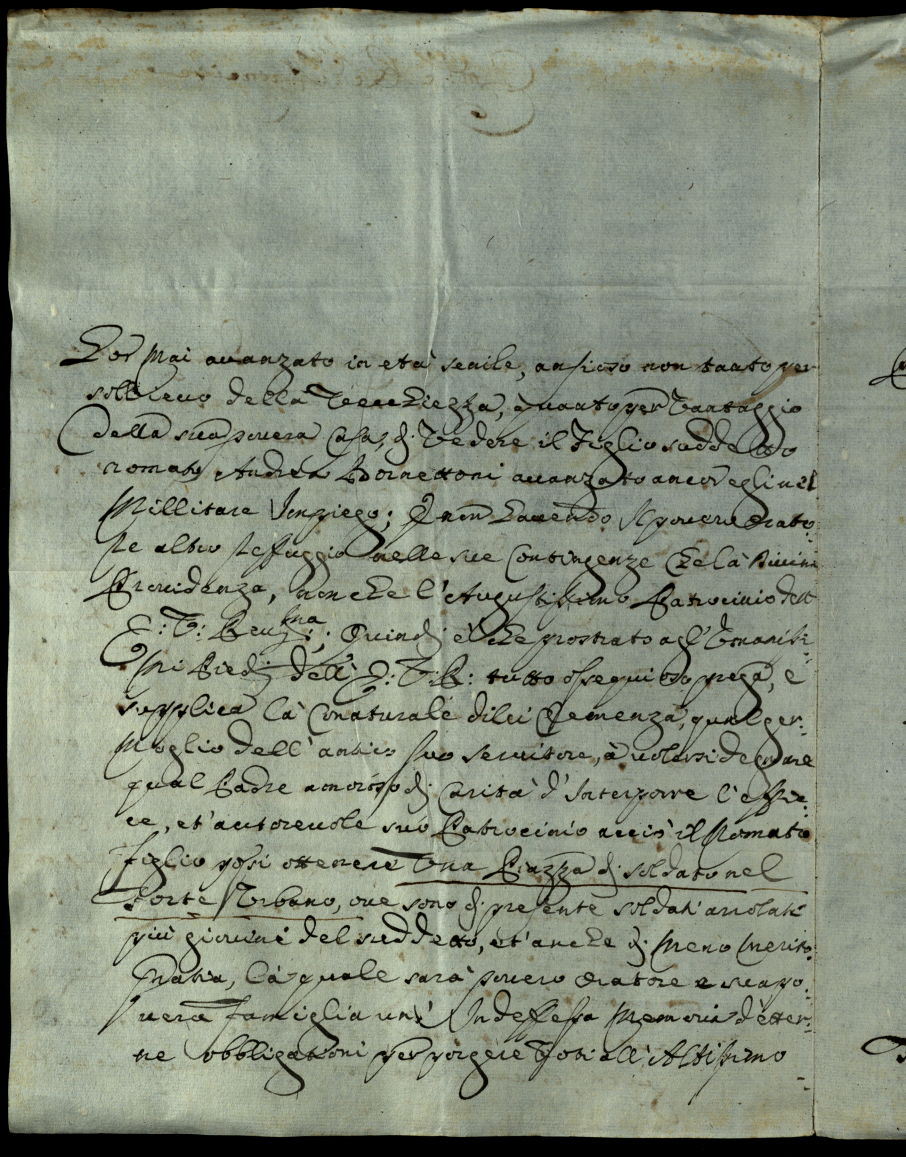 Hor Mai auanzato in età senile, ansioso non tanto per
sollieuo della Vecchiezza, quanto per Vantaggio
della sua pouera Casa, di Vedere il Figlio suddetto
nomato Andrea Bornettoni auanzato ancor egli nel
Millitare Impiego; E non hauendo il pouero Orato:
re altro Reffuggio nelle sue Contingenze che la Diuina
Prouidenza, non che l'Augustissimo Patrocinio dell'
E: V: Reu:ma; Quindi è che prostrato agl'Emanitis:
simi Piedi dell'E: V: R: tutto ossequioso prega, e
supplica la Conaturale di lei Clemenza, qual ger:
moglio dell'antico suo seruitore, à uolersi degnare
qual Padre amoroso di Carità d'Interporre l'effica:
ce, et autoreuole suo Patrocinio acciò il Nomato
figlio possi ottenere Una Piazza di soldato nel
Forte Urbano, oue sono di presente soldati arrolati
più giouini del suddetto, et anche di meno merito.
Gratia, la quale sarà pouero Oratore e sua po:
uera famiglia un' Indeffessa Memoria d'etter:
ne obbligationi per porgere Voti all'Altissimo